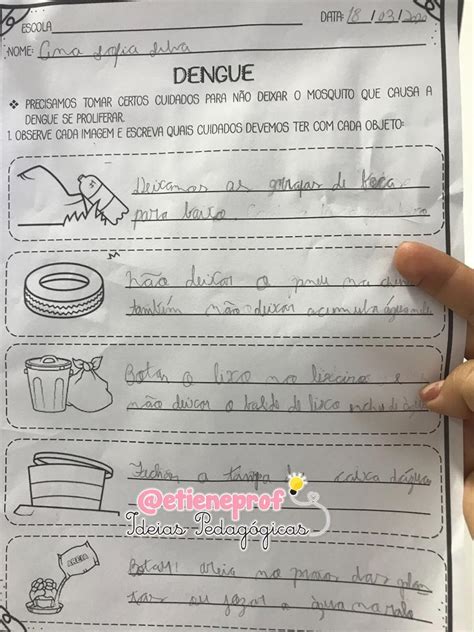 ESCOLA
DATA: 18 / 03 / 2020
NOME: Ana Sofia Silva
DENGUE
❖ PRECISAMOS TOMAR CERTOS CUIDADOS PARA NÃO DEIXAR O MOSQUITO QUE CAUSA A
DENGUE SE PROLIFERAR.
1. OBSERVE CADA IMAGEM E ESCREVA QUAIS CUIDADOS DEVEMOS TER COM CADA OBJETO:
Deixamos as garrafas de boca
para baixo
não deixar o pneu na chuva
também não deixar acumular água nele
Botar o lixo no lixeiro e
não deixar o balde de lixo encher de água
Fechar a tampa da caixa d'água
@etieneprof
Ideias Pedagógicas
AREIA
Botar areia no prato das plan
tas ou jogar a água no ralo